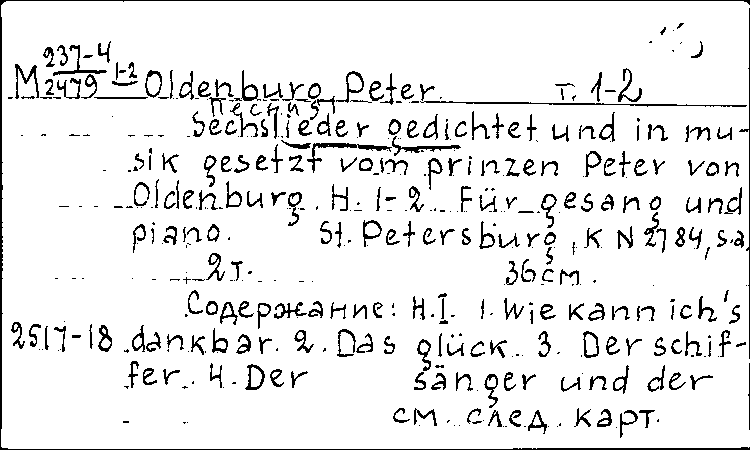 М 237-4/2479 1-2 Oldenburg, Peter. т. 1-2
песния
Sechs lieder gedichtet und in mu-
sik gesetzt vom prinzen Peter von
Oldenburg. H. 1-2 Für gesang und
piano. St. Petersburg, K N 2784, s.a,
2 т. 36 см.
Содержание: H.I. 1. Wie kann ich's
2517-18 dankbar. 2. Das glück. 3. Der schif-
fer. 4. Der sänger und der
см. след. карт.